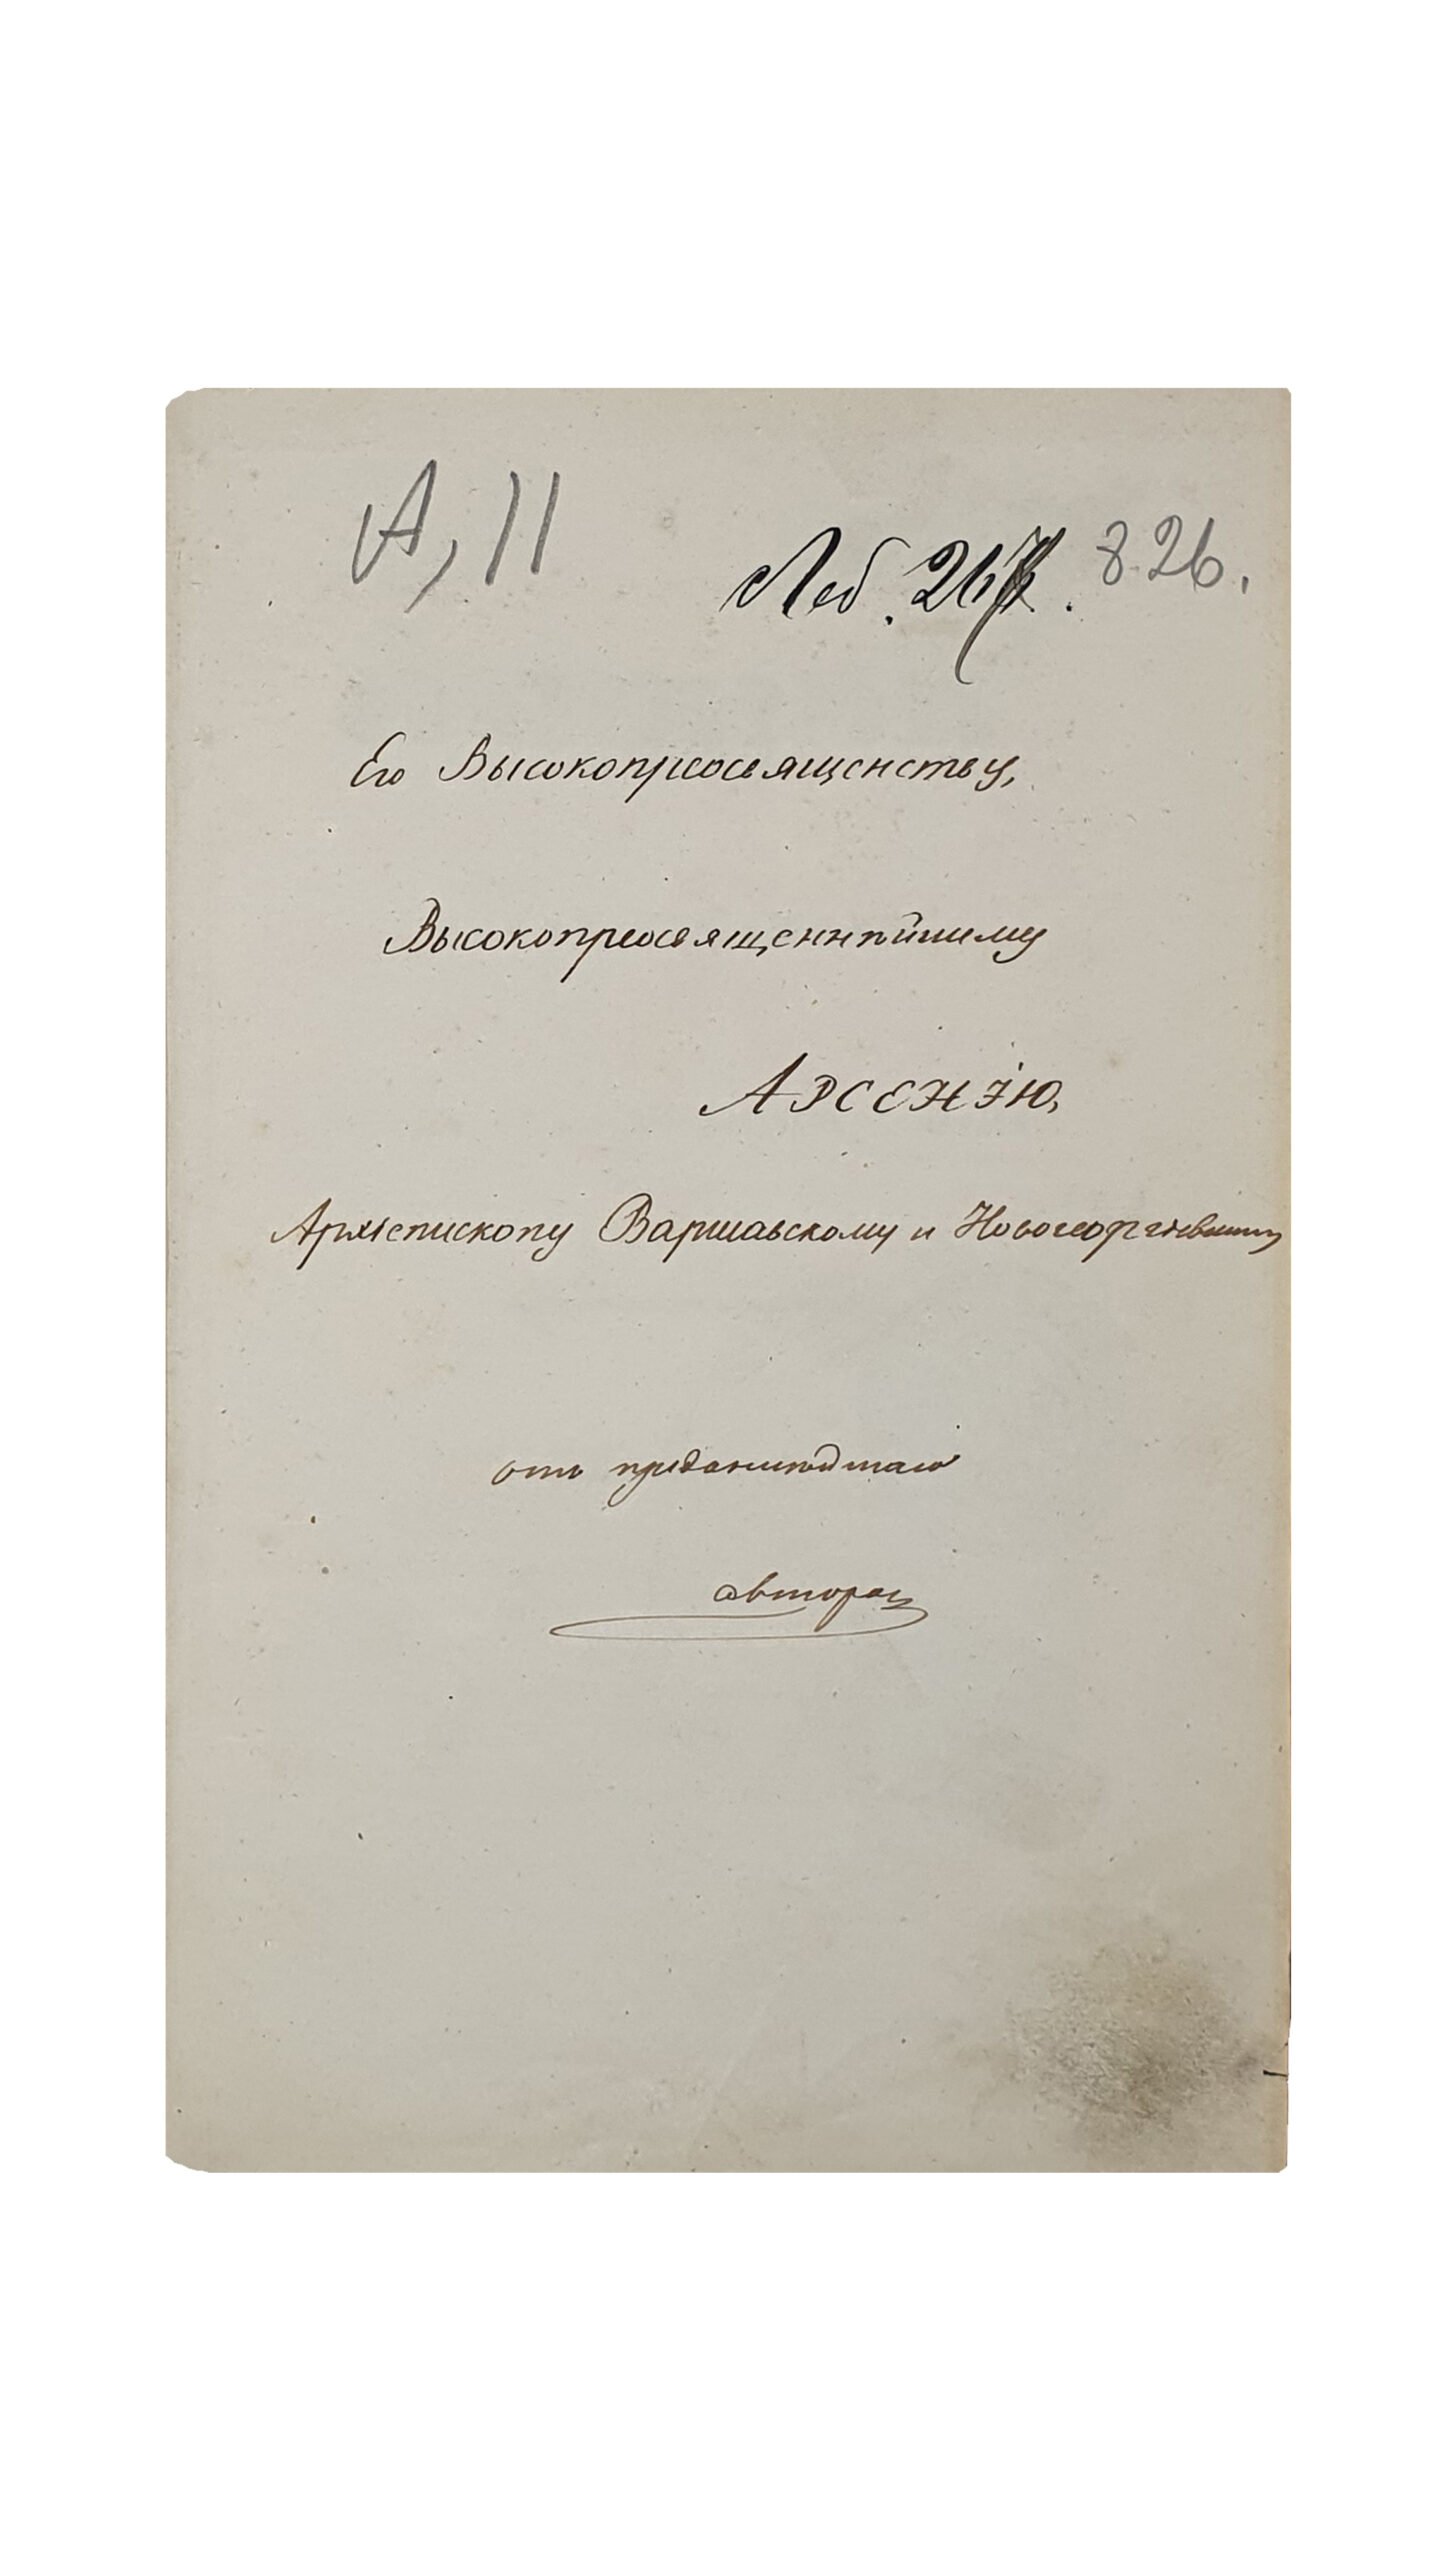 А, 11
Леб. 267. 826.
Его Высокопреосвященству,
Высокопреосвященнѣйшему
Арсенію,
Архіепископу Варшавскому и Новогеоргіевскому
отъ преданнѣйшаго
автора